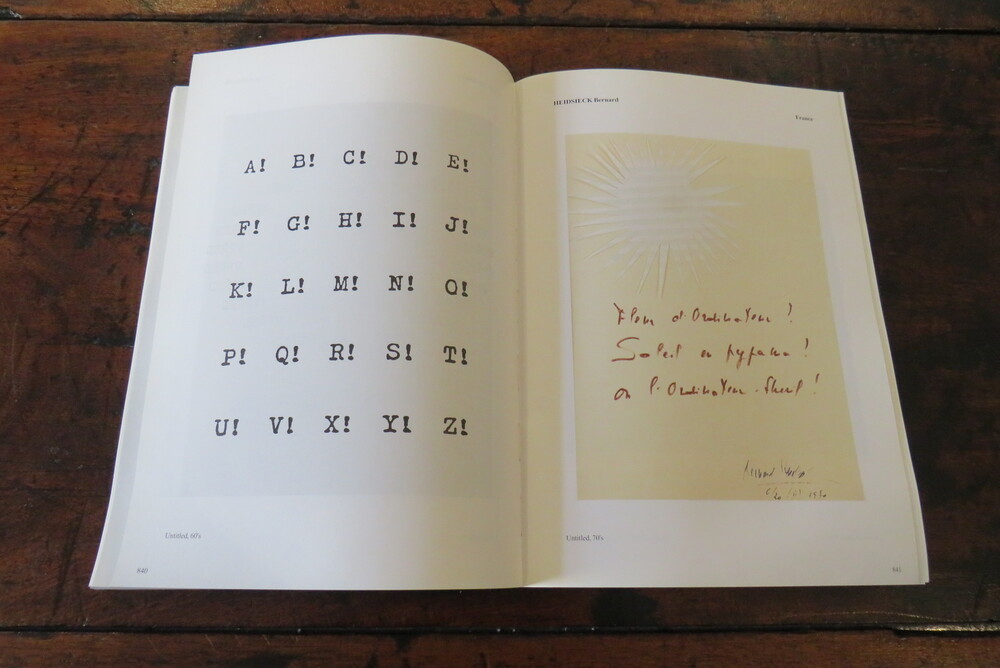 A! B! C! D! E!
F! G! H! I! J!
K! L! M! N! O!
P! Q! R! S! T!
U! V! X! Y! Z!
Untitled, 60's
840
HEIDSIECK Bernard
France
Fleur d'Ordinateur !
Soleil en pyjama !
ou l'Ordinateur-fleur !
Untitled, 70's